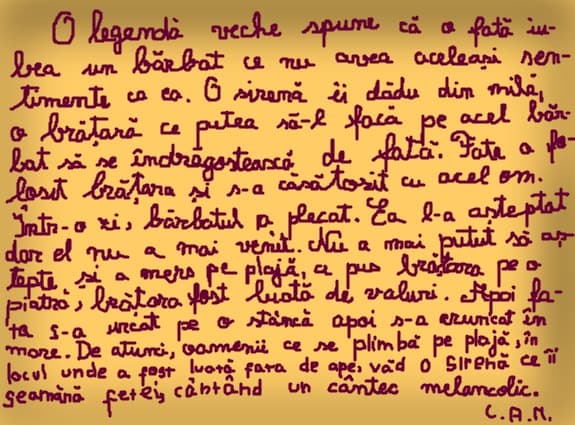 O legendă veche spune că o fată iu-
bea un bărbat ce nu avea aceleași sen-
timente ca ea. O sirenă îi dădu din milă,
o brățară ce putea să-l facă pe acel băr-
bat să se îndrăgostească de fată. Fata a fo-
losit brățara și s-a căsătorit cu acel om.
Într-o zi, bărbatul a plecat. Ea l-a așteptat
dar el nu a mai venit. Nu a mai putut să aș-
tepte și a mers pe plajă, a pus brățara pe o
piatră, brățara fost luată de valuri. Apoi fa-
ta s-a urcat pe o stâncă apoi s-a aruncat în
mare. De atunci, oamenii ce se plimbă pe plajă, în
locul unde a fost luată fata de ape, văd o sirenă ce îi
seamănă fetei, cântând un cântec melancolic.
C.A.M.